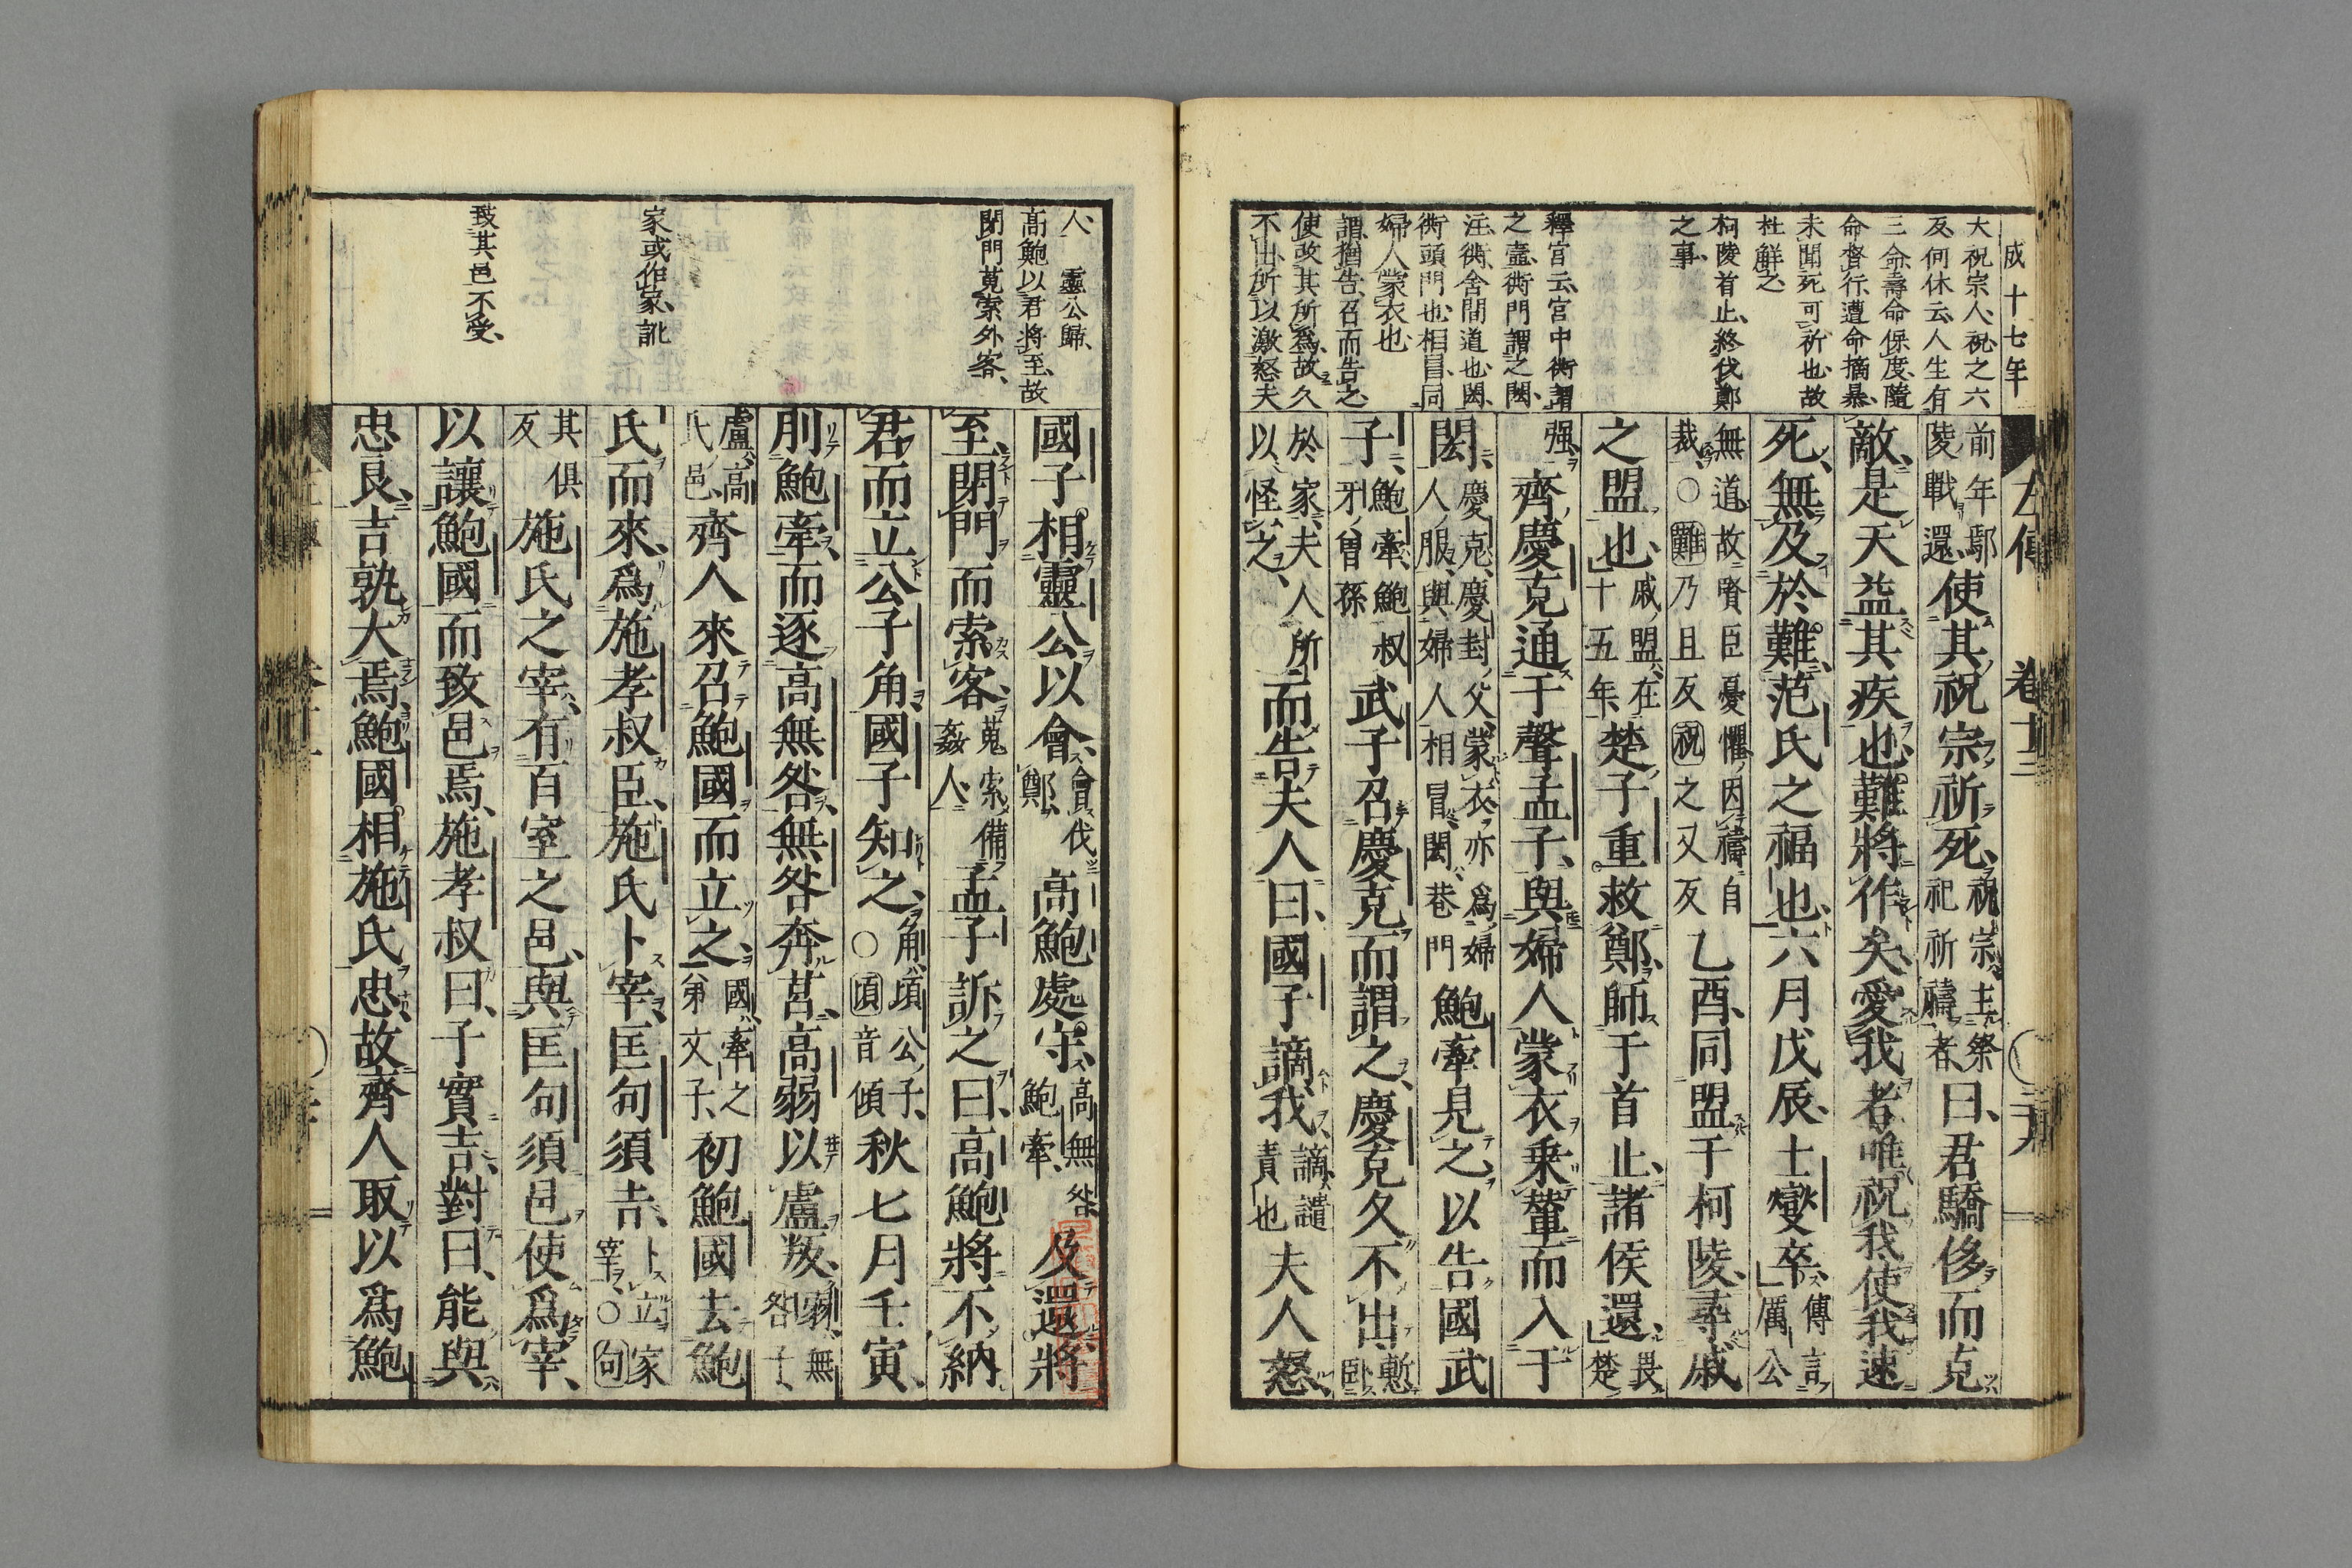 成十七年
大祝宗人、祝之六
反、何休云、人生有
三命、壽命保度、隨
命督行、遭命摘暴、
未聞死可祈也、故
杜解之
柯陵首止、終伐鄭
之事、
釋宮云、宮中衖謂
之壼、衖門謂之閎、
注、衖、舍間道也、閎、
衖頭門也、相冒、同
婦人蒙衣也
謂猶告、召而告之、
使改其所爲、故久
不出、所以激怒夫
前年鄢
陵戰還、
使其祝宗祈死、
祝宗、主祭
祀祈禱者、
曰、君驕侈而克
敵、是天益其疾也、難將作矣、愛我者唯祝我、使我速
死、無及於難、范氏之福也、六月戊辰、士燮卒、
傳言厲公
無道、故賢臣憂懼、因禱自
裁、○難乃且反祝之又反
乙酉、同盟于柯陵、尋戚
之盟也、
戚盟、在
十五年
楚子重救鄭、師于首止、諸侯還、
畏楚
强、
齊慶克通于聲孟子、與婦人蒙衣乘輦而入于
閎、
慶克、慶封父、蒙衣、亦爲婦
人服、與婦人相冒、閎、巷門
鮑牽見之、以告國武
子、
鮑牽、鮑叔
牙曾孫
武子召慶克而謂之、慶克久不出、
慙臥
於家、夫人所
以怪之、
而告夫人曰、國子謫我、
謫、譴
責也
夫人怒
左傳 卷十三
人、靈公歸、
高鮑以君將至、故
閉門蒐索外客、
家或作家、訛
致其邑不受、
國子相靈公以會、
會伐
鄭、
高鮑處守、
高無咎
鮑牽、
及還、將
至、閉門而索客、
蒐索、備
姦人、
孟子訴之曰、高鮑將不納
君而立公子角、國子知之、
角、頃公子、
○頃音傾
秋七月壬寅、
刖鮑牽而逐高無咎、無咎奔莒、高弱以盧叛、
弱、無
咎子、
盧、高
氏邑、
齊人來召鮑國而立之、
國、牽之
弟文子、
初鮑國去鮑
氏而來、爲施孝叔臣、施氏卜宰、匡句須吉、
卜立家
宰、○句
其俱
反
施氏之宰、有百室之邑、與匡句須邑、使爲宰、
以讓鮑國而致邑焉、施孝叔曰、子實吉、對曰、能與
忠良、吉孰大焉、鮑國相施氏忠、故齊人取以爲鮑